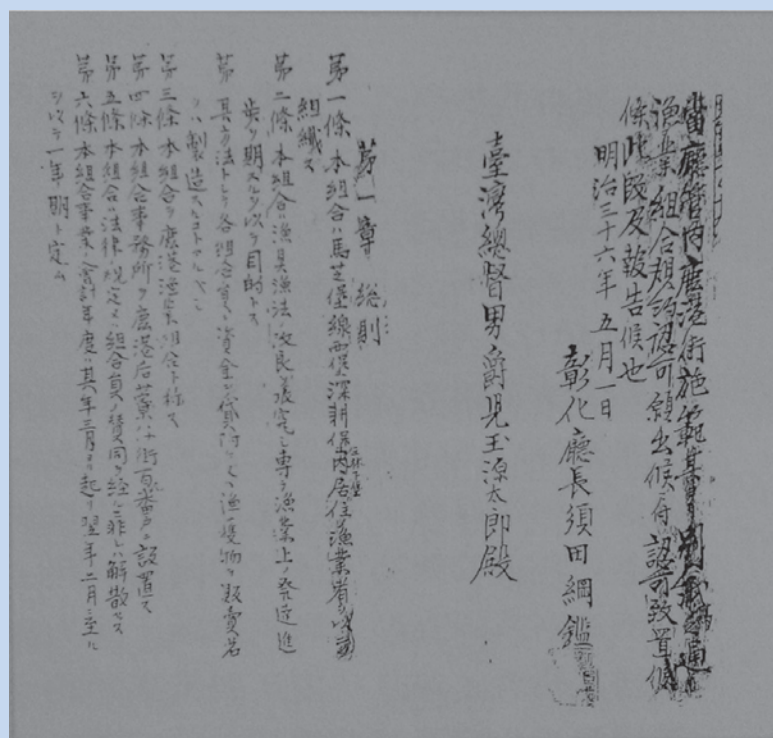 當廳管内鹿港街施範其
漁業組合規約認可願出候ニ付認可致置候
候此段及報告候也
明治三十六年五月一日
彰化廳長須田綱鑑
臺灣總督男爵児玉源太郎殿
第一章 総則
第一條 本組合ハ馬芝堡線西堡深耕保内居住漁業者ヲ以テ
組織ス
第二條 本組合ハ漁具漁法ノ改良ヲ講究シ専ラ漁業上ノ発達進
歩ヲ期スルヲ以テ目的トス
其方法トシテ各組合員ニ資金ヲ貸付ケ又ハ漁獲物ヲ販賣若
クハ製造スルコトアルヘシ
第三條 本組合ヲ鹿港漁業組合ト称ス
第四條 本組合事務所ヲ鹿港后藔仔街百番戸ニ設置ス
第五條 本組合ハ法律規定又ハ組合員ノ賛同ヲ経ルニ非レハ解散セス
第六條 本組合事業ノ會計年度ハ其年三月ヨリ起リ翌年二月ニ至ル
ヲ以テ一年期ト定ム